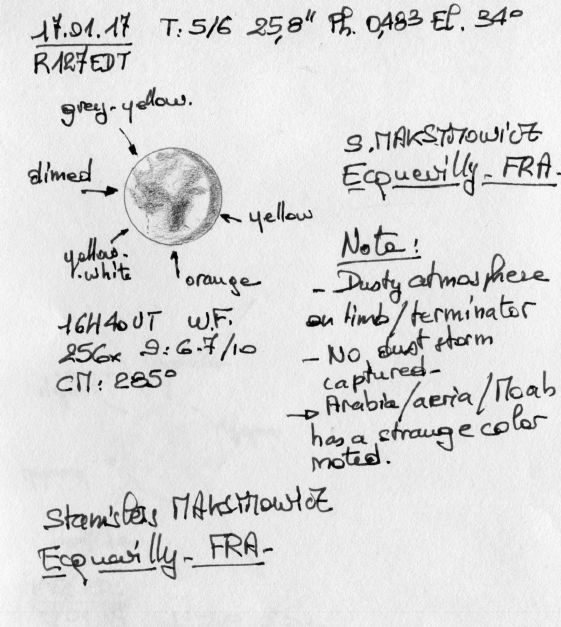 17.01.17 T: 5/6 25,8" Ph. 0,483 El. 34°
R127EDT
grey-yellow.
dimed
yellow
yellow-
white
orange
16H40UT W.F.
256x S: 6.7/10
CM: 285°
S. MAKSYMOWICZ
Ecquevilly - FRA-
Note:
- Dusty atmosphere
on limb/terminator
- No dust storm
captured-
→ Arabia/aeria/Moab
has a strange color
noted.
Stanislas MAKSYMOWICZ
Ecquevilly - FRA-